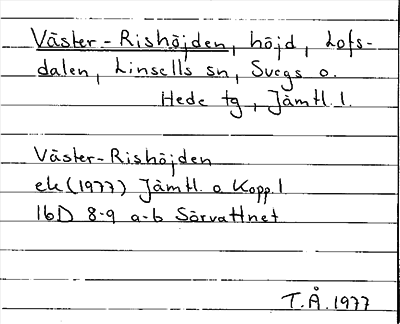 Väster-Rishöjden, höjd, Lofs-
dalen, Linsells sn, Svegs o.
Hede tg, Jämtl. l.
Väster-Rishöjden
ek (1977) Jämtl. o Kopp. l
16D 8-9 a-b Sörvattnet
T.Å. 1977